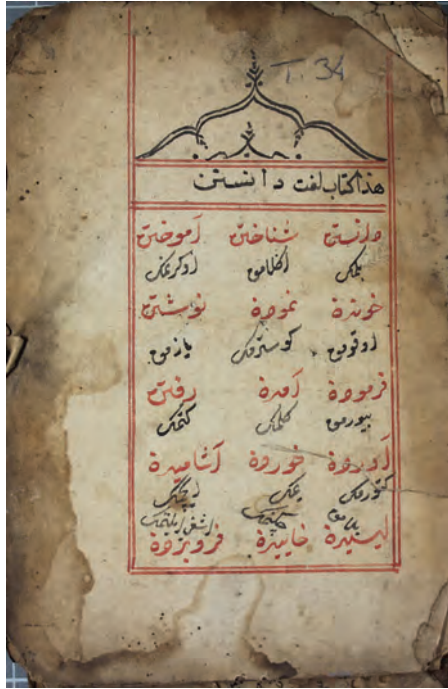 T. 34
هذا كتاب لغت دانستن
دانستن شناختن آموختن
بلمك اكلامق اوكرنمك
خوندة نمودة نوشتن
اوقومق كوسترمك يازمق
فرمودة آمدة رفتن
بيورمق كلمك كتمك
آوردة خوردة آشاميدة
كتورمك يمك ايچمك
ليسيدة خاييدة فروبردة